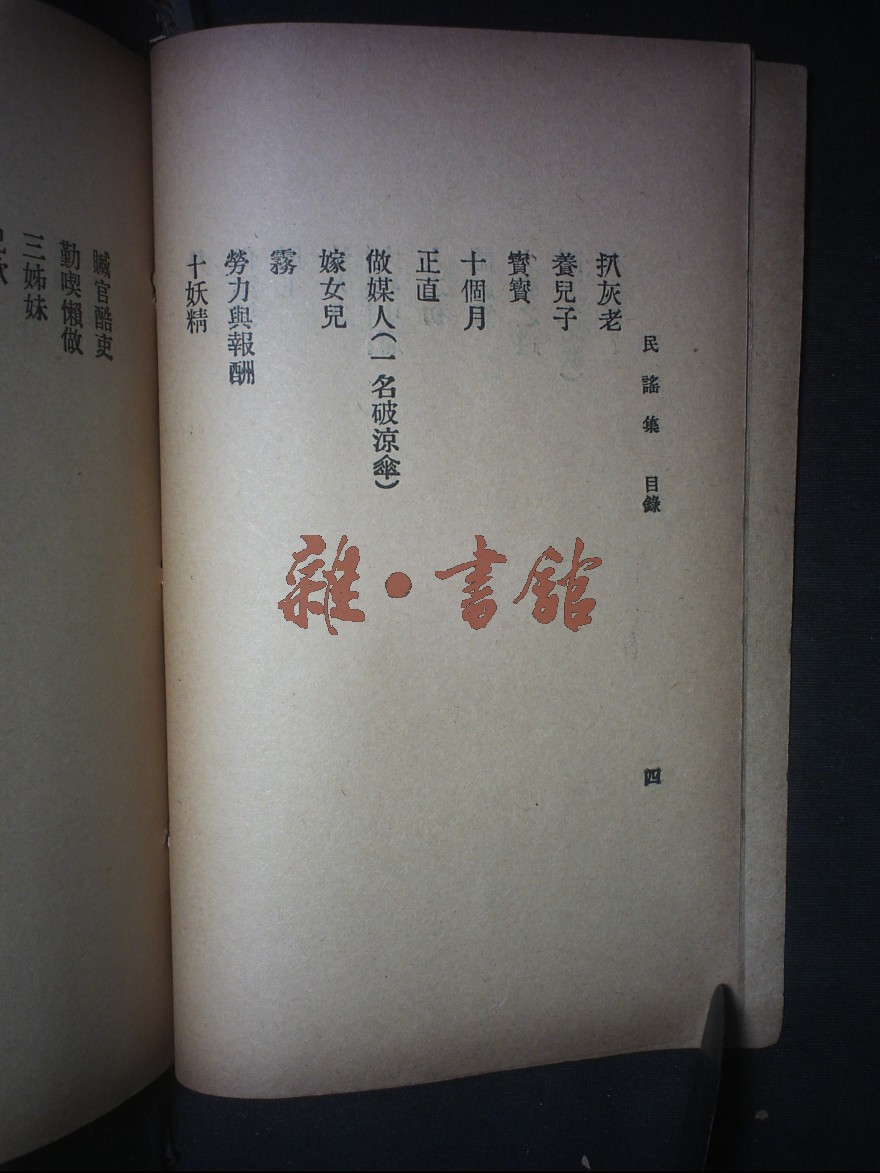 民謠集 目錄
四
扒灰老
養兒子
寶寶
十個月
正直
做媒人(一名破涼傘)
嫁女兒
霧
勞力與報酬
十妖精
贓官酷吏
勤喫懶做
三姊妹
雜·書館